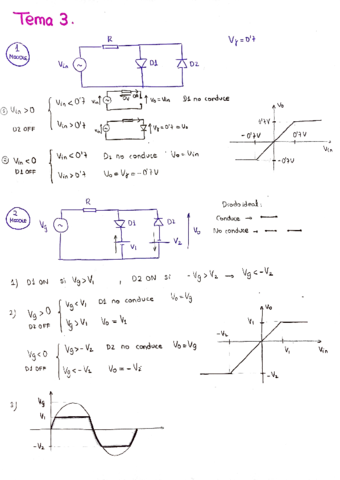 Tema 3.
1
MOODLE
R
Vin
D1
D2
Vγ = 0'7
① Vin > 0
D2 OFF
Vin < 0'7
Vo = Vin
D1 no conduce
Vin > 0'7
Vγ = 0'7 = Vo
② Vin < 0
D1 OFF
Vin < 0'7
D2 no conduce
Vo = Vin
Vin > 0'7
Vo = Vγ = -0'7V
Vo
0'7V
-0'7V
0'7V
Vin
-0'7V
2
MOODLE
R
Vg
D1
D2
V1
V2
Vo
Diodo ideal:
Conduce →
No conduce →
1) D1 ON si Vg > V1 , D2 ON si -Vg > V2 → Vg < -V2
2) Vg > 0
D2 OFF
Vg < V1 D1 no conduce Vo = Vg
Vg > V1 Vo = V1
Vg < 0
D1 OFF
Vg > -V2 D2 no conduce Vo = Vg
Vg < -V2 Vo = -V2
Vo
V1
-V2
V1
Vin
-V2
Vg
V1
-V2